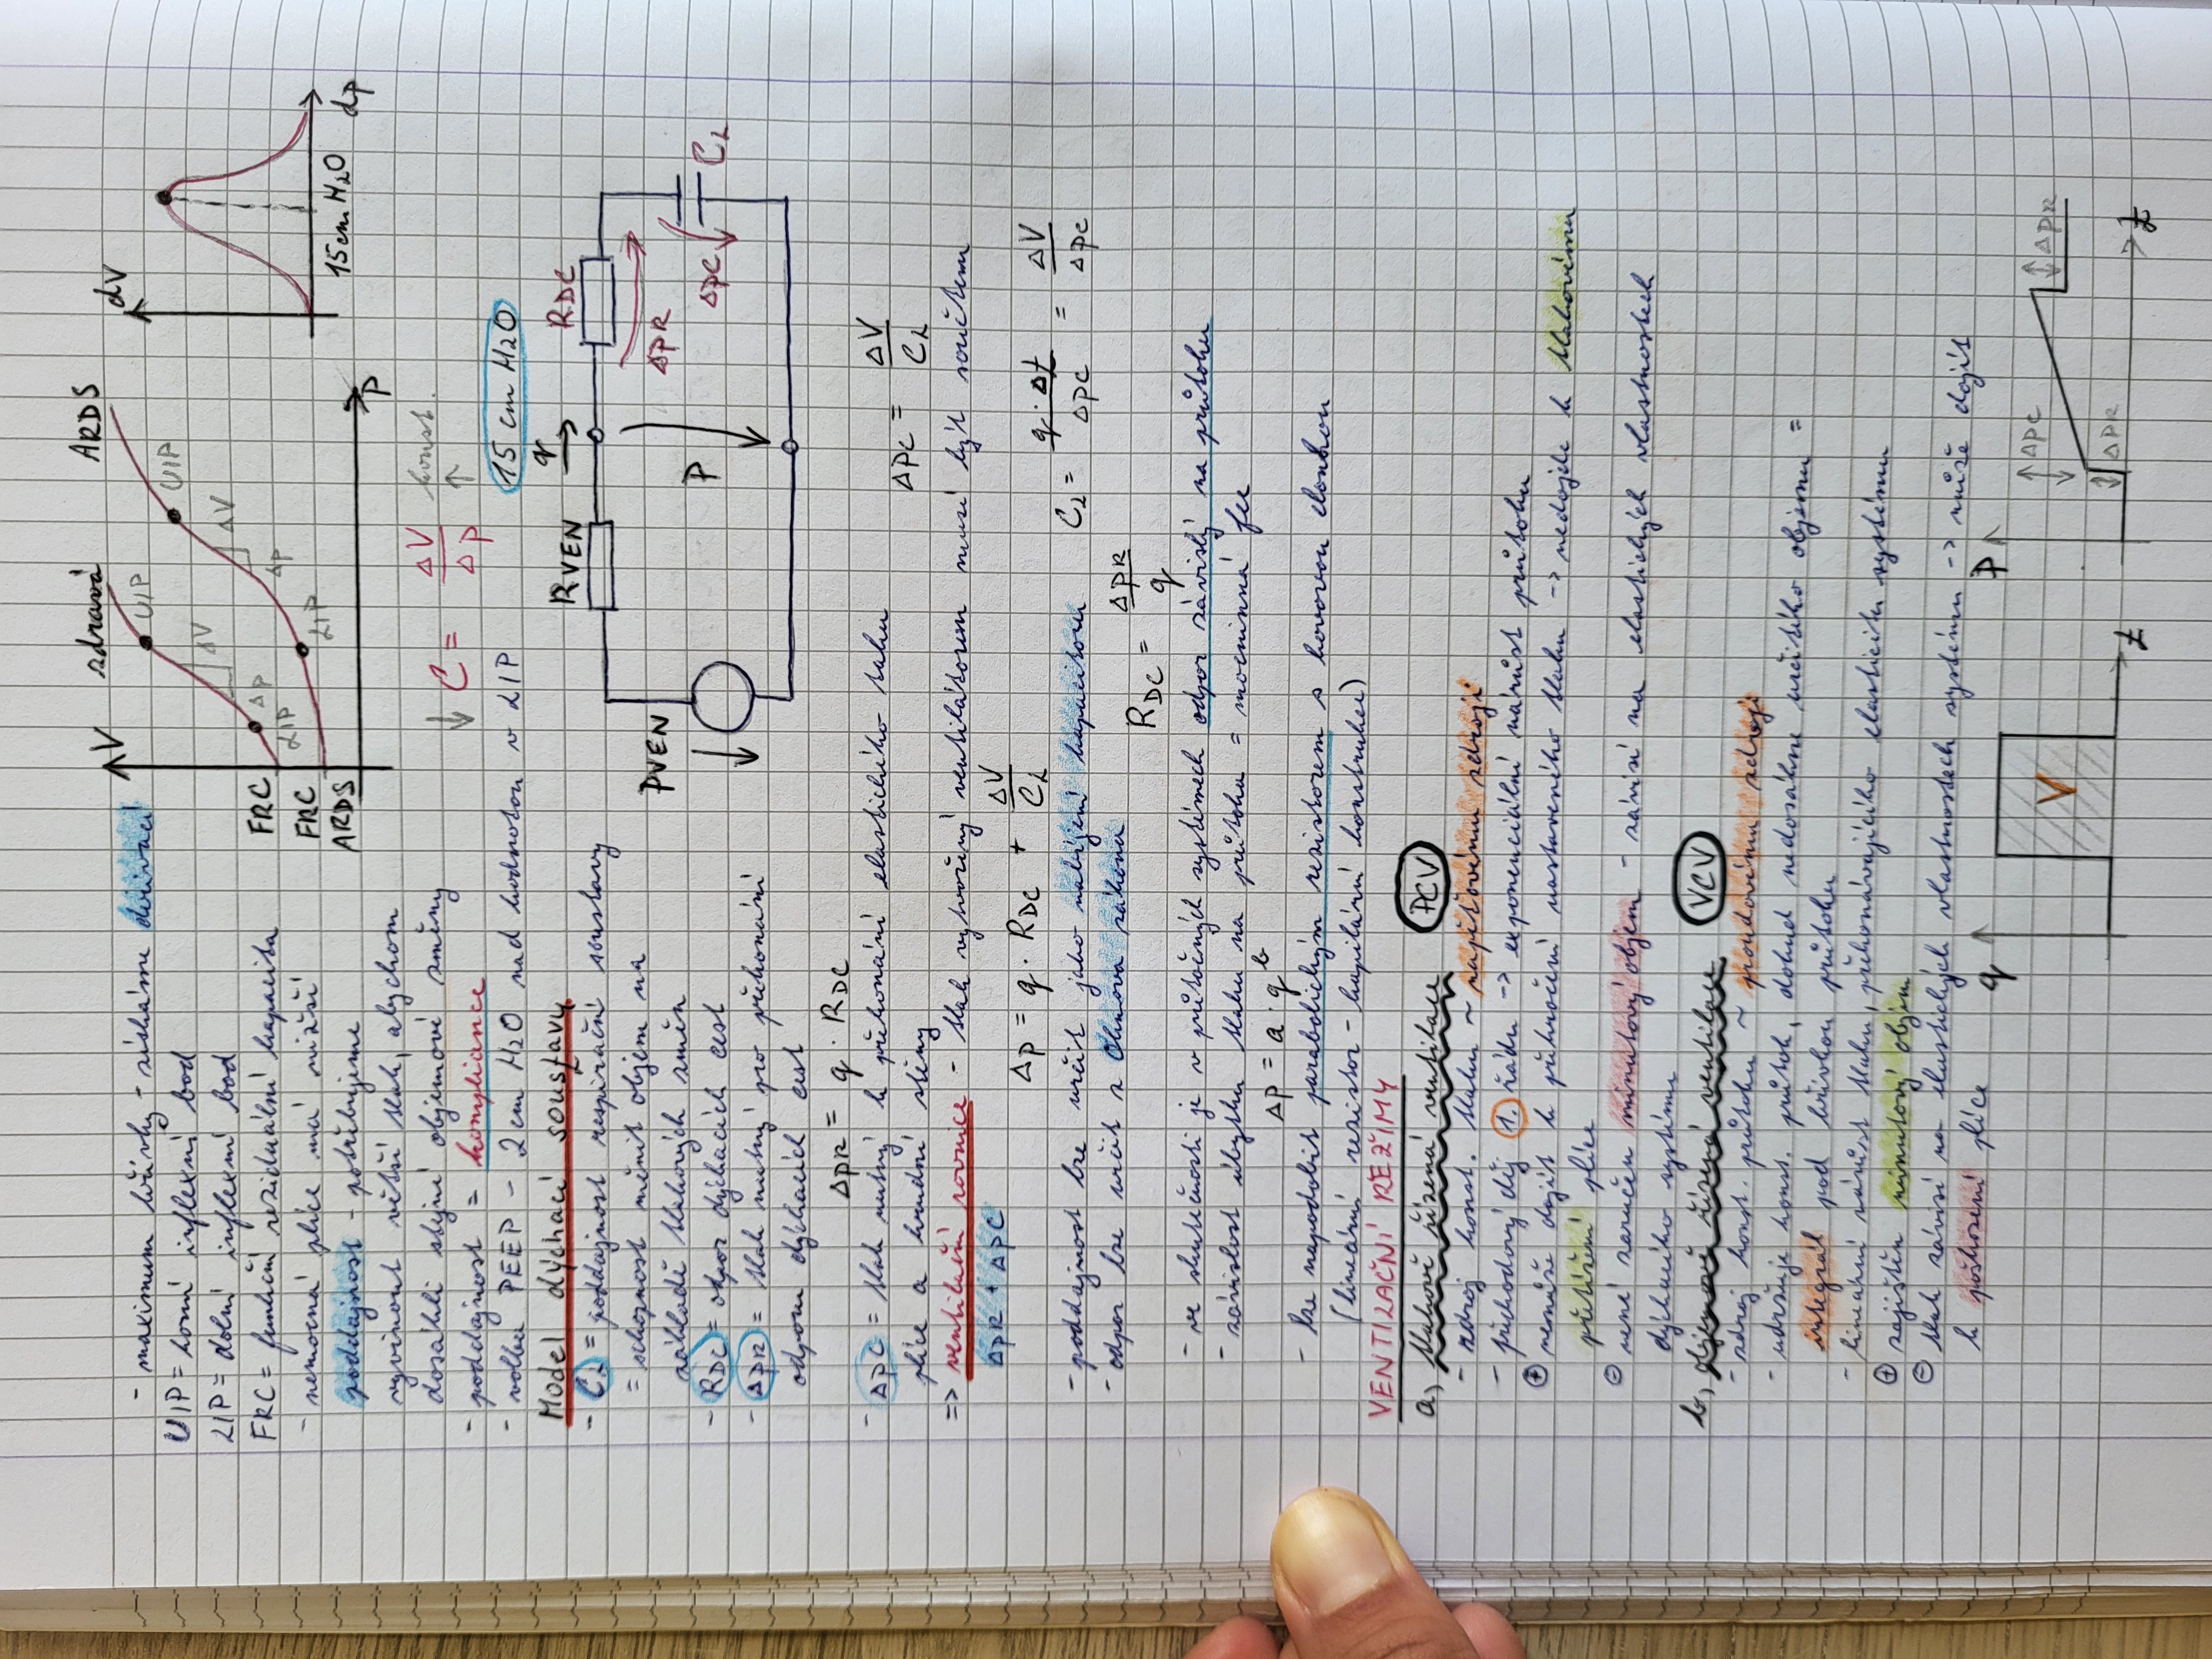 - maximum křivky - získáme derivací
UIP = horní inflexní bod
LIP = dolní inflexní bod
FRC = funkční reziduální kapacita
- nemocná plíce má nižší
poddajnost - potřebujeme
vyvinout větší tlak, abychom
dosáhli stejné objemové změny
- poddajnost = kompliance
- volba PEEP - 2 cm H2O nad hodnotou v LIP
V
zdravá
ARDS
UIP
UIP
ΔV
ΔV
FRC
Δp
Δp
LIP
FRC
LIP
ARDS
P
dV
15 cm H2O
dp
↓ C = ΔV / Δp konst. ↑
15 cm H2O
Model dýchací soustavy
- CL = poddajnost respirační soustavy
= schopnost měnit objem na
základě tlakových změn
- RDC = odpor dýchacích cest
- ΔPR = tlak nutný pro překonání
odporu dýchacích cest
ΔPR = q · RDC
RVEN
q
RDC
PVEN
ΔPR
P
ΔPC
CL
- ΔPC = tlak nutný k překonání elastického tahu
plíce a hrudní stěny
ΔPC = ΔV / CL
=> ventilační rovnice - tlak vytvořený ventilátorem musí být součtem
ΔPR + ΔPC
Δp = q · RDC + ΔV / CL
- poddajnost lze určit jako nabíjení kapacitoru
CL = q · Δt / ΔPC = ΔV / ΔPC
- odpor lze určit z Ohmova zákona
RDC = ΔPR / q
- ve skutečnosti je v průtočných systémech odpor závislý na průtoku
- závislost úbytku tlaku na průtoku = mocninná fce
Δp = a · q^b
- lze napodobit parabolickým rezistorem s kovovou clonkou
(lineární rezistor - kapilární konstrukce)
VENTILAČNÍ REŽIMY
a) tlakově řízená ventilace PCV
- zdroj konst. tlaku ~ napěťovému zdroji
- přechodový děj 1. řádu -> exponenciální nárůst průtoku
⊕ nemůže dojít k překročení nastaveného tlaku -> nedojde k tlakovému
přetížení plíce
⊖ není zaručen minutový objem - závisí na elastických vlastnostech
dýchacího systému
b) objemově řízená ventilace VCV
- zdroj konst. průtoku ~ proudovému zdroji
- udržuje konst. průtok, dokud nedosáhne určitého objemu =
integrál pod křivkou průtoku
- lineární nárůst tlaku, překonávajícího elasticitu systému
⊕ zajištěn minutový objem
⊖ tlak závisí na elastických vlastnostech systému -> může dojít
k poškození plíce
q
V
t
P
ΔPC
ΔPR
ΔPR
t